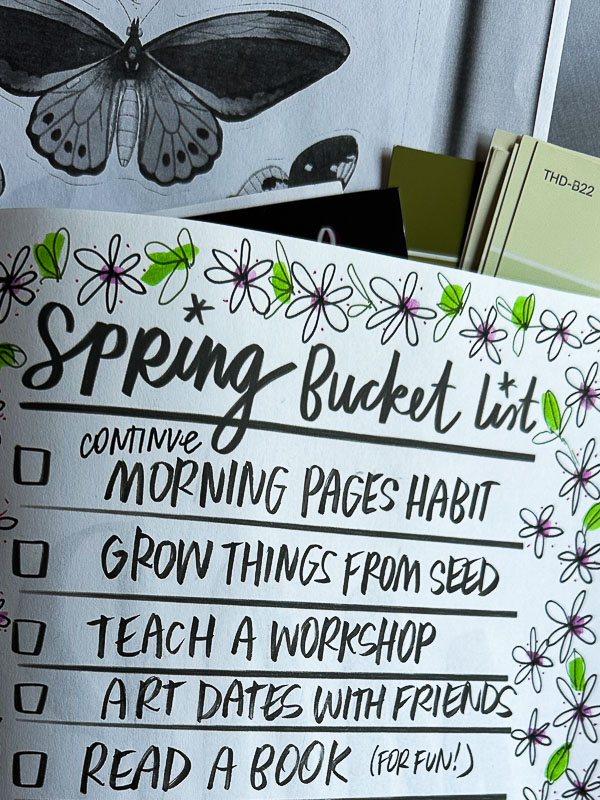 THD-B22
Spring Bucket list
CONTINUE
MORNING PAGES HABIT
GROW THINGS FROM SEED
TEACH A WORKSHOP
ART DATES WITH FRIENDS
READ A BOOK (FOR FUN!)